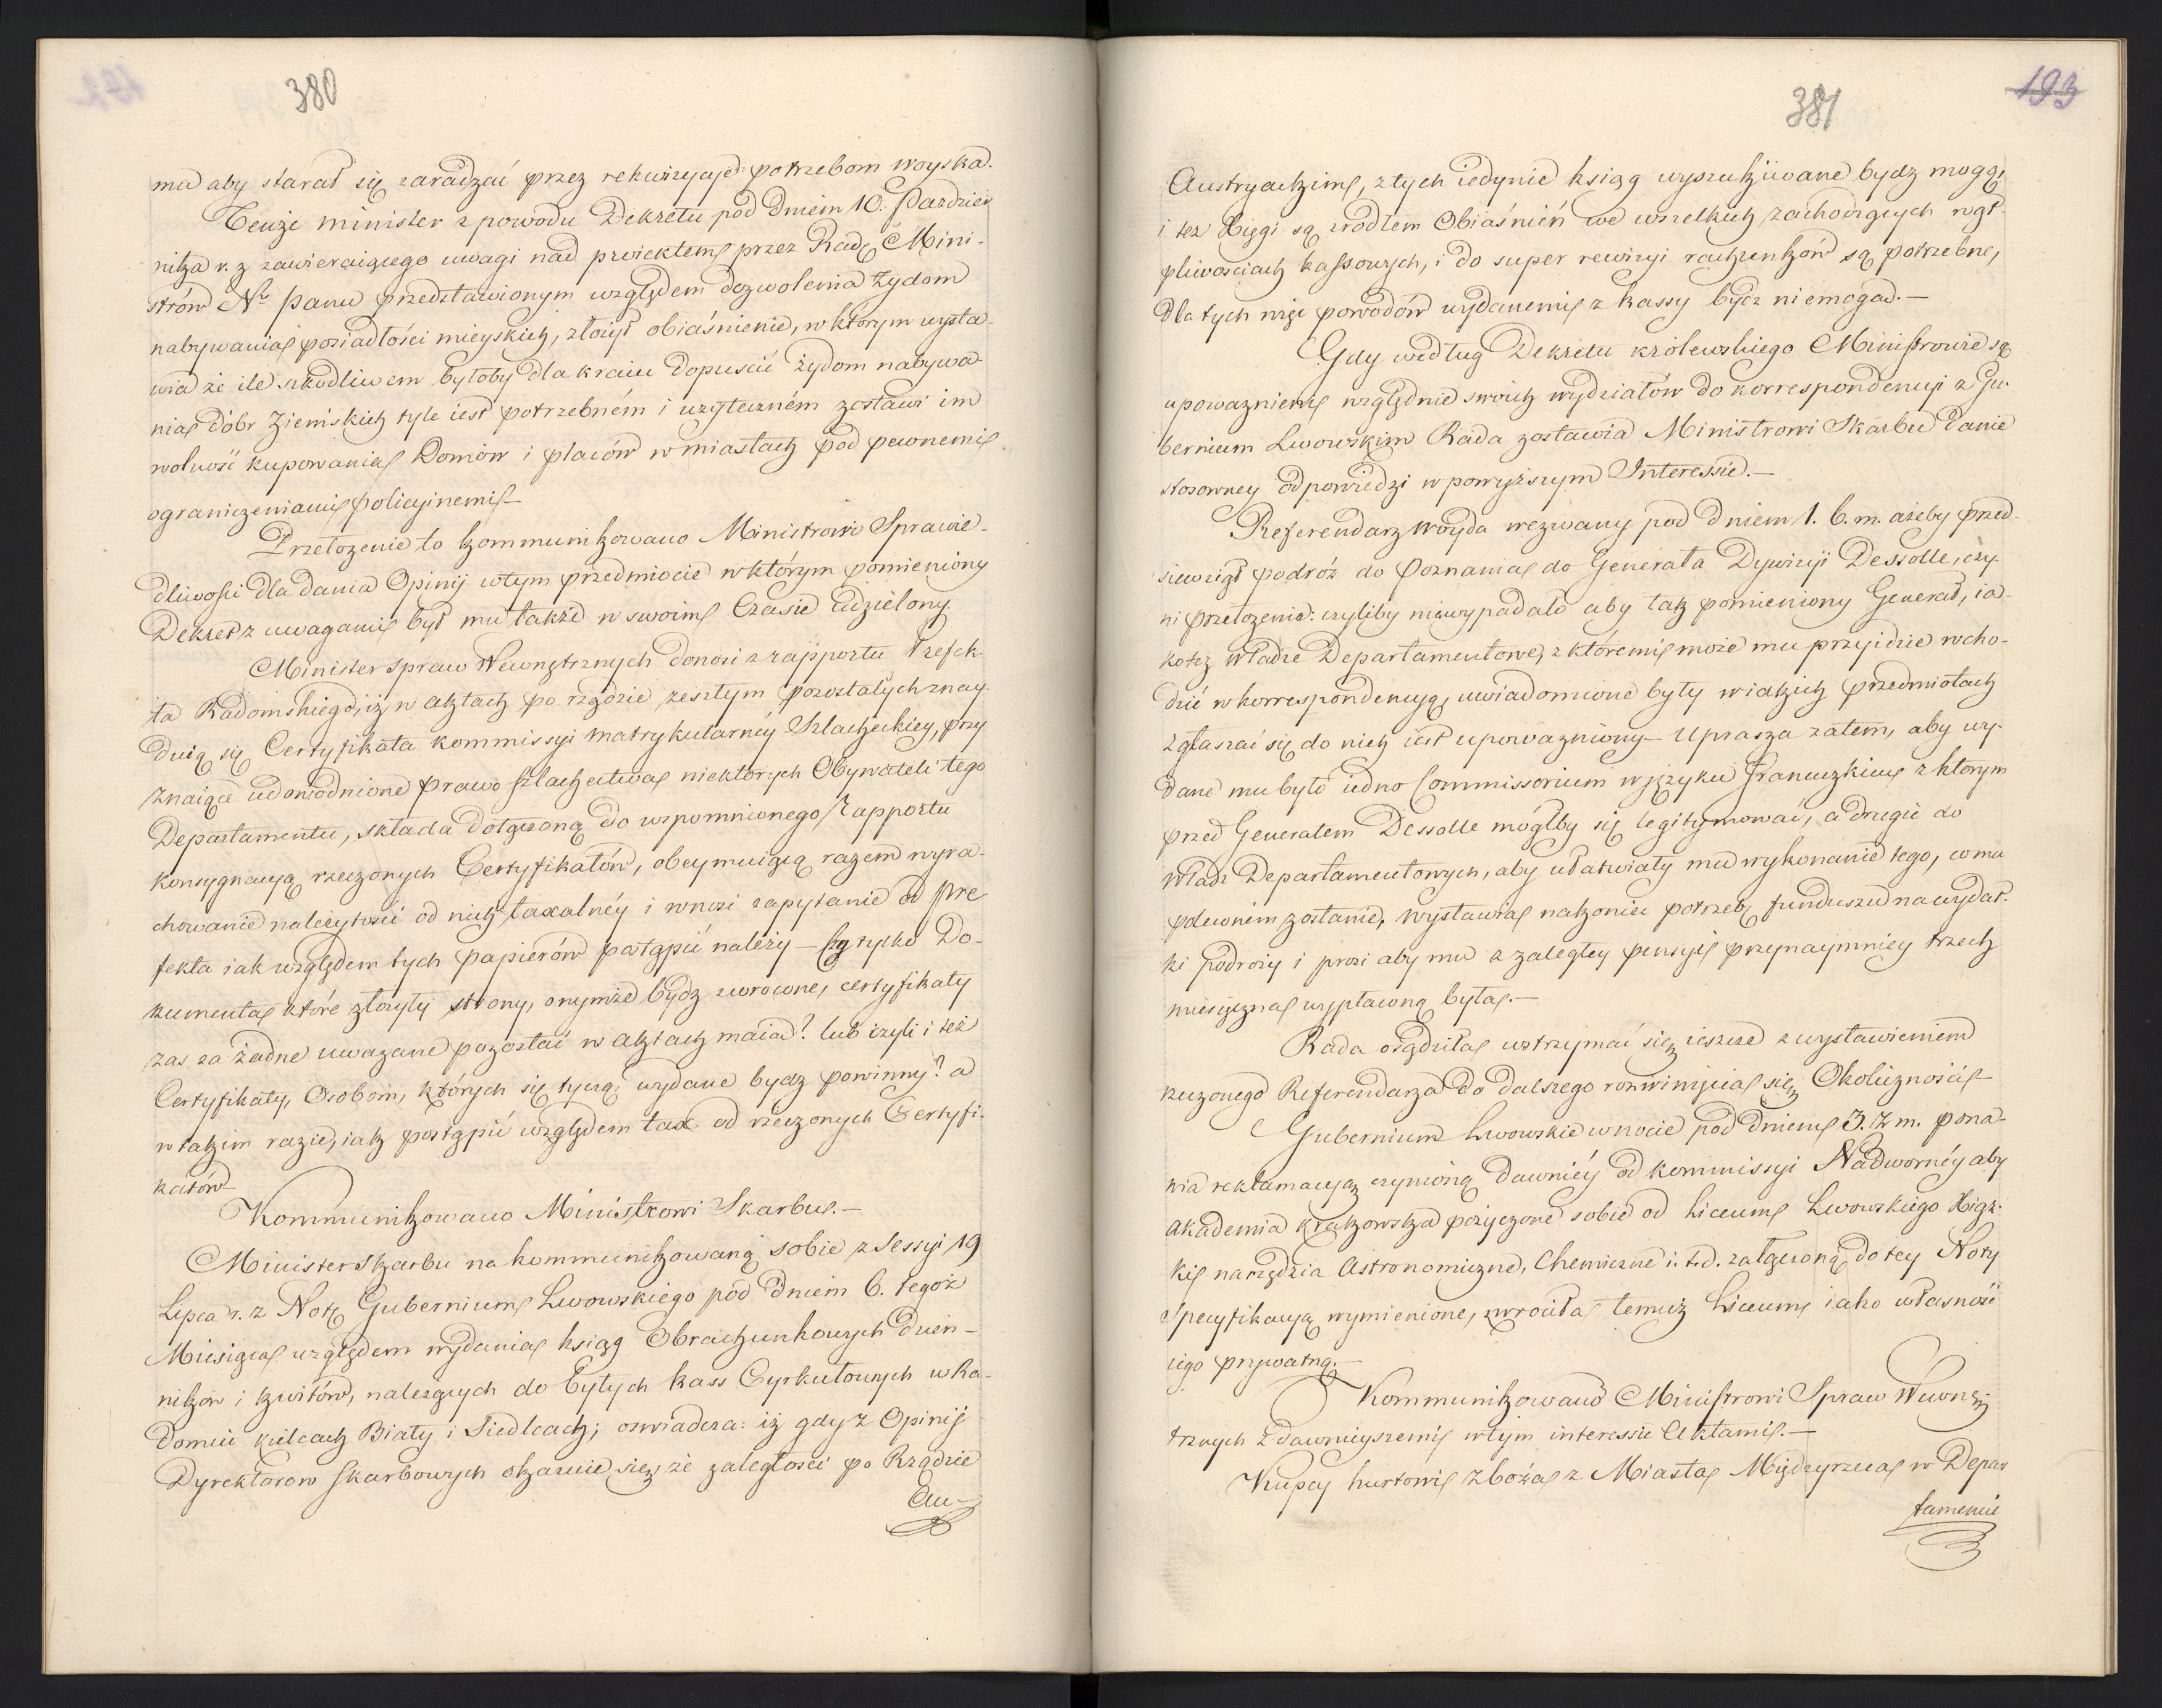 380
mu aby starał się zaradzać przez rekwizycye potrzebom woyska.
Tenże minister z powodu Dekretu pod Dniem 10. Paździer
nika r. z. zawieraiącego uwagi nad proiektem przez Radę Mini-
strów Nu Panu przedstawionym względem dozwolenia Żydom
nabywania posiadłości mieyskich, złożył obiaśnienie, w którym wysta-
wia że ile szkodliwem byłoby dla kraiu dopuścić żydom nabywa-
nia dóbr Ziemskich tyle iest potrzebném i użyteczném zostawić im
wolność kupowania Domów i placów w miastach pod pewnemi
ograniczeniami policyinemi.—
Przełożenie to kommunikowano Ministrowi Sprawie-
dliwości dla dania Opinij w tym przedmiocie w którym pomieniony
Dekret z uwagami był mu także w swoim Czasie udzielony.
Minister Spraw Wewnętrznych donosi z rapportu Prefek-
ta Radomskiego, iż w aktach po rządzie zeszłym pozostałych znay-
duią się Certyfikata kommissyi matrykularnéy Szlacheckiey, przy
znaiące udowodnione prawo szlachectwa niektórych Obywateli tego
Departamentu, składa dołączoną do wspomnionego Rapportu
konsygnacyą rzeczonych Certyfikatów, obeymuiącą razem wyra-
chowanie należytości od nich taxalnéy i wnosi zapytanie od Pre
fekta iak względem tych papierów postąpić należy — Czy tylko Do-
kumenta które złożyły strony, onymże bydź zwrócone, certyfikaty
zas za żadne uwazane pozostać w aktach maią? lub iżyli i też
Certyfikaty, Osobom, których się tyczą, wydane bydź powinny? a
w takim razie, iak postąpić względem tax od rzeczonych Certyfi-
katów—
Kommunikowano Ministrowi Skarbu.—
Minister Skarbu na kommunikowaną sobie z Sessyi 19
Lipca r. z Notę Gubernium Lwowskiego pod Dniem 6. tegoż
Miesiąca względem wydania ksiąg Obrachunkowych Dzien-
ników i kwitów, należących do byłych kass Cyrkułowych w Ra-
domiu kielcach Biały i Siedlcach; oświadcza: iż gdy z Opinij
Dyrektorow Skarbowych okazuie się, że zaległości po Rządzie
Au-
381
193
Austryackim, z tych iedynie ksiąg wyszukiwane bydz mogą,
i też Xięgi są źródłem Obiaśnień we wszelkich zachodzących wąt-
pliwościach kassowych, i do super rewizyi rachunków są potrzebne,
dla tych więc powodów wydanemi z kassy bydz niemogą.—
Gdy według Dekretu królewskiego Ministrowie są
upoważnieni względnie swoich wydziałów do korrespondencyi z Gu-
bernium Lwowskim Rada zostawia Ministrowi Skarbu danie
stosowney odpowiedzi w powyższym Interessie.—
Referendarz Woyda wezwany pod dniem 1. b. m. ażeby przed-
siewziął podróż do Poznania do Generała Dywizyi Dessolle, czy-
ni przełożenie: czyliby niewypadało aby tak pomieniony Generał, ia-
kotéz Władze Departamentowe, z któremi może mu przyidzie wcho-
dzić w korrespondencyą, uwiadomione były w iakich przedmiotach
zgłaszać się do nich iest upoważniony — Uprasza zatem, aby wy-
dane mu było iedno Commissorium w ięzyku francuzkim z którym
przed Generałem Dessolle mógłby się legitymować, a drugie do
Władz Departamentowych, aby ułatwiały mu wykonanie tego, co mu
poleconém zostanie, wystawia nakoniec potrzebę funduszu na wydat-
ki podroży i prosi aby mu z zaległey pensyi przynaymniey trzech
miesięczna wypłaconą była.—
Rada osądziła wstrzymać się, ieszcze z wysłaniem
rzeczonego Referendarza do dalszego rozwinięcia się Okoliczności—
Gubernium Lwowskie w nocie pod Dniem 3. z. m. pona-
wia reklamacyą, czynioną dawniéy od kommissyi Nadwornéy aby
Akademia krakowska pożyczone sobie od Liceum Lwowskiego Xiąż-
ki, narzędzia Astronomiczne, Chemiczne i. t. d. załączoną do tey Noty
Specyfikacyą wymienione, zwróciła temuż Liceum iako własność
iego prywatną.—
Kommunikowano Ministrowi Spraw Wewnę-
trznych z dawnieyszemi w tym interessie Aktami.—
Kupcy hurtowi zboża z Miasta Międzyrzeca w Depar
tamencie